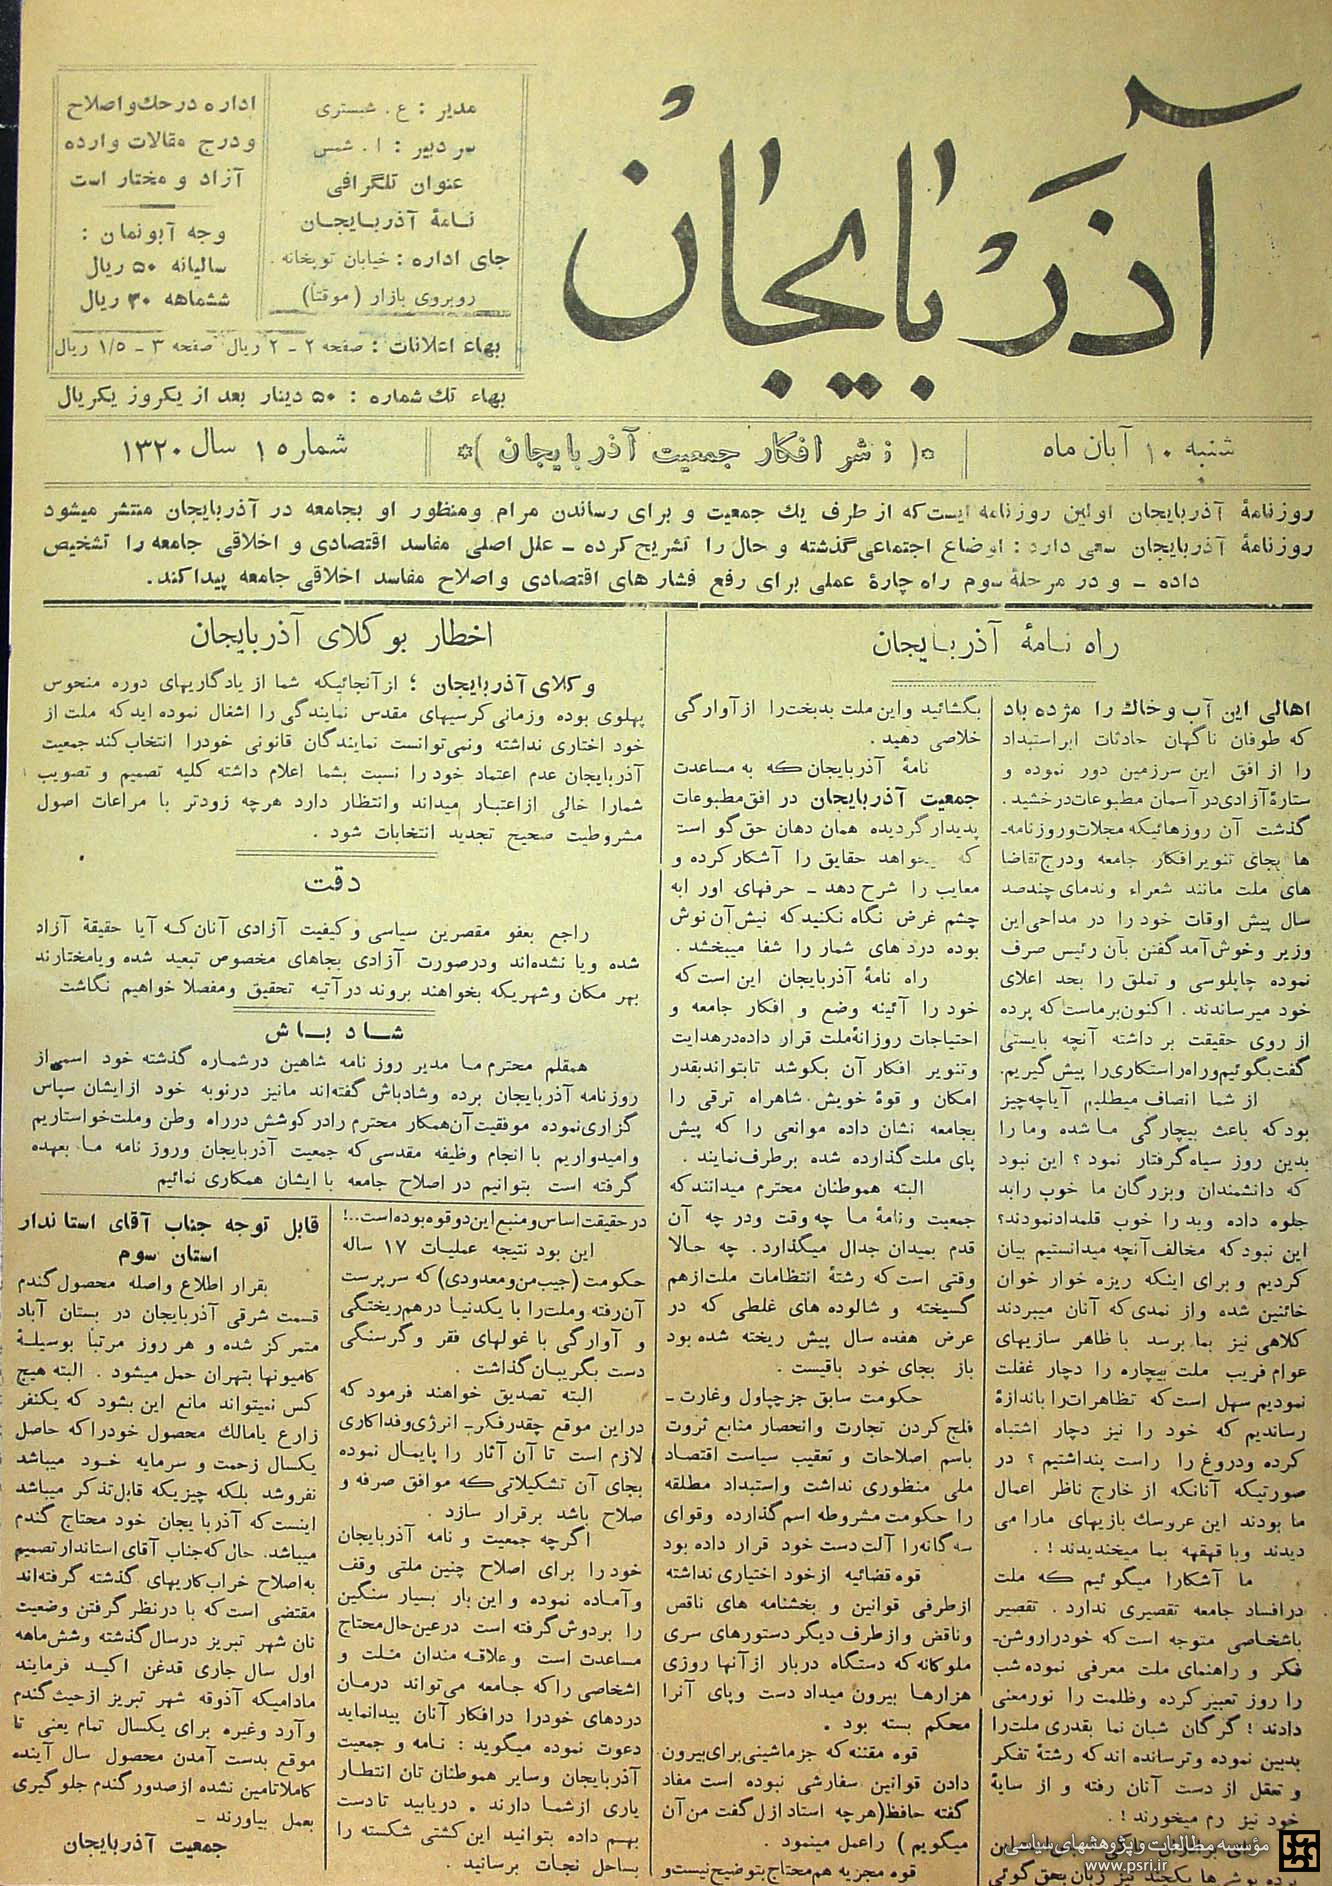 آذربایجان
مدیر : ع . شبستری
سردبیر : ا . شمس
عنوان تلگرافی
نامهٔ آذربایجان
جای اداره : خیابان توپخانه .
روبروی بازار (موقتاً)
اداره در حك و اصلاح
و درج مقالات وارده
آزاد و مختار است
وجه آبونمان :
سالیانه ۵۰ ریال
ششماهه ۳۰ ریال
بهاء اعلانات : صفحه ۲ ـ ۲ ریال صفحه ۳ ـ ۱/۵ ریال
بهاء تك شماره : ۵۰ دینار بعد از یکروز یکریال
شنبه ۱۰ آبان ماه
( نشر افکار جمعیت آذربایجان )
شماره ۱ سال ۱۳۲۰
روزنامهٔ آذربایجان اولین روزنامه ایست که از طرف یك جمعیت و برای رساندن مرام ومنظور او بجامعه در آذربایجان منتشر میشود
روزنامهٔ آذربایجان سعی دارد : اوضاع اجتماعی گذشته و حال را تشریح کرده ـ علل اصلی مفاسد اقتصادی و اخلاقی جامعه را تشخیص
داده ـ و در مرحلهٔ سوم راه چارهٔ عملی برای رفع فشار های اقتصادی و اصلاح مفاسد اخلاقی جامعه پیدا کند.
راه نامهٔ آذربایجان
اهالی این آب و خاك را مژده باد
که طوفان ناگهان حادثات ابر استبداد
را از افق این سرزمین دور نموده و
ستارهٔ آزادی در آسمان مطبوعات درخشید.
گذشت آن روزهائیکه مجلات و روزنامه‌ـ
ها بجای تنویر افکار جامعه و درج تقاضا
های ملت مانند شعراء وندمای چندصد
سال پیش اوقات خود را در مداحی این
وزیر وخوش آمد گفتن بآن رئیس صرف
نموده چاپلوسی و تملق را بحد اعلای
خود میرساندند . اکنون برماست که پرده
از روی حقیقت بر داشته آنچه بایستی
گفت بگوئیم و راه راستکاری را پیش گیریم.
از شما انصاف میطلبم آیا چه چیز
بود که باعث بیچارگی ما شده وما را
بدین روز سیاه گرفتار نمود ؟ این نبود
که دانشمندان وبزرگان ما خوب را بد
جلوه داده وبد را خوب قلمداد نمودند؟
این نبود که مخالف آنچه میدانستیم بیان
کردیم و برای اینکه ریزه خوار خوان
خائنین شده واز نمدی که آنان میبردند
کلاهی نیز بما برسد با ظاهر سازیهای
عوام فریب ملت بیچاره را دچار غفلت
نمودیم سهل است که تظاهرات را باندازهٔ
رساندیم که خود را نیز دچار اشتباه
کرده ودروغ را راست پنداشتیم ؟ در
صورتیکه آنانکه از خارج ناظر اعمال
ما بودند این عروسك بازیهای مارا می
دیدند وبا قهقهه بما میخندیدند ! .
ما آشکارا میگوئیم که ملت
در افساد جامعه تقصیری ندارد . تقصیر
باشخاصی متوجه است که خود را روشن‌ـ
فکر و راهنمای ملت معرفی نموده شب
را روز تعبیر کرده وظلمت را نور معنی
دادند ! گرگان شبان نما بقدری ملت را
بدبین نموده و ترسانده اند که رشتهٔ تفکر
و تعقل از دست آنان رفته و از سایهٔ
خود نیز رم میخورند ! .
بگشائید واین ملت بدبخت را از آوارگی
خلاصی دهید .
نامهٔ آذربایجان که به مساعدت
جمعیت آذربایجان در افق مطبوعات
پدیدار گردیده همان دهان حق گو است
که میخواهد حقایق را آشکار کرده و
معایب را شرح دهد ـ حرفهای اورا به
چشم غرض نگاه نکنید که نیش آن نوش
بوده درد های شمار را شفا میبخشد .
راه نامهٔ آذربایجان این است که
خود را آئینه وضع و افکار جامعه و
احتیاجات روزانهٔ ملت قرار داده در هدایت
و تنویر افکار آن بکوشد تا بتواند بقدر
امکان و قوهٔ خویش شاهراه ترقی را
بجامعه نشان داده موانعی را که پیش
پای ملت گذارده شده بر طرف نمایند .
البته هموطنان محترم میدانند که
جمعیت ونامهٔ ما چه وقت ودر چه آن
قدم بمیدان جدال میگذارد . چه حالا
وقتی است که رشتهٔ انتظامات ملت از هم
گسیخته و شالوده های غلطی که در
عرض هفده سال پیش ریخته شده بود
باز بجای خود باقیست .
حکومت سابق جز چپاول وغارت ـ
فلج کردن تجارت وانحصار منابع ثروت
باسم اصلاحات و تعقیب سیاست اقتصاد
ملی منظوری نداشت واستبداد مطلقه
را حکومت مشروطه اسم گذارده وقوای
سه گانه را آلت دست خود قرار داده بود
قوه قضائیه از خود اختیاری نداشته
از طرفی قوانین و بخشنامه های ناقص
وناقض و از طرف دیگر دستورهای سری
ملوکانه که دستگاه دربار از آنها روزی
هزارها بیرون میداد دست وپای آنرا
محکم بسته بود .
قوه مقننه که جز ماشینی برای بیرون
دادن قوانین سفارشی نبوده است مفاد
گفته حافظ (هرچه استاد ازل گفت من آن
میگویم ) را عمل مینمود .
قوه مجریه هم محتاج بتوضیح نیست و
در حقیقت اساس و منبع این دو قوه بوده است..!
این بود نتیجه عملیات ۱۷ ساله
حکومت (جیب من و معدودی) که سرپرست
آن رفته وملت را با یکدنیا درهم ریختگی
و آوارگی با غولهای فقر و گرسنگی
دست بگریبان گذاشت .
البته تصدیق خواهند فرمود که
در این موقع چقدر فکرـ انرژی و فداکاری
لازم است تا آن آثار را پایمال نموده
بجای آن تشکیلاتی که موافق صرفه و
صلاح باشد برقرار سازد .
اگرچه جمعیت و نامه آذربایجان
خود را برای اصلاح چنین ملتی وقف
و آماده نموده و این بار بسیار سنگین
را بردوش گرفته است در عین حال محتاج
مساعدت است و علاقه مندان ملت و
اشخاصی را که جامعه می تواند درمان
دردهای خود را در افکار آنان پیدا نماید
دعوت نموده میگوید : نامه و جمعیت
آذربایجان وسایر هموطنان تان انتظار
یاری از شما دارند . دریابید تا دست
بهم داده بتوانید این کشتی شکسته را
بساحل نجات برسانید .
اخطار بوکلای آذربایجان
وکلای آذربایجان ؛ از آنجائیکه شما از یادگاریهای دوره منحوس
پهلوی بوده وزمانی کرسیهای مقدس نمایندگی را اشغال نموده اید که ملت از
خود اختاری نداشته ونمی توانست نمایندگان قانونی خود را انتخاب کند جمعیت
آذربایجان عدم اعتماد خود را نسبت بشما اعلام داشته کلیه تصمیم و تصویب
شمارا خالی از اعتبار میداند وانتظار دارد هرچه زودتر با مراعات اصول
مشروطیت صحیح تجدید انتخابات شود .
دقت
راجع بعفو مقصرین سیاسی و کیفیت آزادی آنان که آیا حقیقة آزاد
شده ویا نشده‌اند ودر صورت آزادی بجاهای مخصوص تبعید شده ویا مختارند
بهر مکان وشهریکه بخواهند بروند در آتیه تحقیق ومفصلا خواهیم نگاشت
شاد باش
همقلم محترم ما مدیر روزنامه شاهین در شماره گذشته خود اسمی از
روزنامه آذربایجان برده وشادباش گفته‌اند مانیز در نوبه خود از ایشان سپاس
گزاری نموده موفقیت آن همکار محترم را در کوشش در راه وطن وملت خواستاریم
وامیدواریم با انجام وظیفه مقدسی که جمعیت آذربایجان وروز نامه ما بعهده
گرفته است بتوانیم در اصلاح جامعه با ایشان همکاری نمائیم
قابل توجه جناب آقای استاندار
استان سوم
بقرار اطلاع واصله محصول گندم
قسمت شرقی آذربایجان در بستان آباد
متمرکز شده و هر روز مرتباً بوسیلهٔ
کامیونها بتهران حمل میشود . البته هیچ
کس نمیتواند مانع این بشود که یکنفر
زارع یا مالك محصول خود را که حاصل
یکسال زحمت و سرمایه خود میباشد
نفروشد بلکه چیزیکه قابل تذکر میباشد
اینست که آذربایجان خود محتاج گندم
میباشد. حال که جناب آقای استاندار تصمیم
به اصلاح خراب کاریهای گذشته گرفته‌اند
مقتضی است که با در نظر گرفتن وضعیت
نان شهر تبریز در سال گذشته وشش ماهه
اول سال جاری قدغن اکید فرمایند
مادامیکه آذوقه شهر تبریز از حیث گندم
و آرد وغیره برای یکسال تمام یعنی تا
موقع بدست آمدن محصول سال آینده
کاملا تامین نشده از صدور گندم جلوگیری
بعمل بیاورند ـ
جمعیت آذربایجان
مؤسسه مطالعات و پژوهشهای سیاسی
www.psri.ir